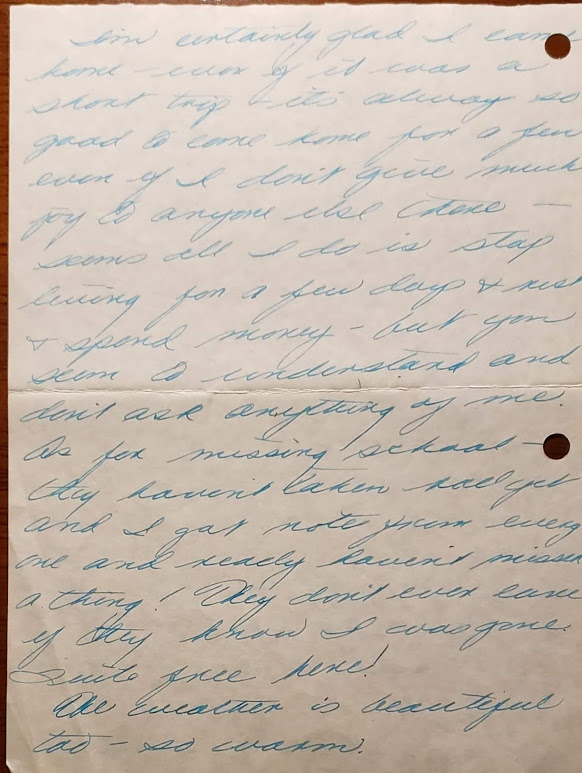 I'm certainly glad I came
home – even if it was a
short trip – it's alway so
good to come home for a few
even if I don't give much
joy to anyone else there –
seems all I do is stop
living for a few days & rest
& spend money – but you
seem to understand and
don't ask anything of me.
As for missing school –
they haven't taken roll yet
and I got note from every
one and really haven't missed
a thing! They don't even care
if they know I was gone.
Quite free here!
The weather is beautiful
too – so warm.